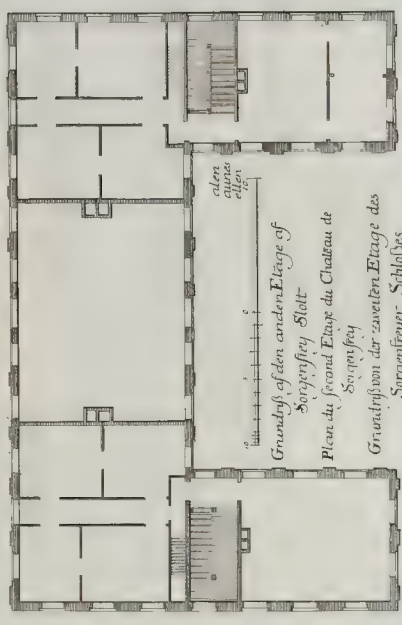 alen
aunes
ellen
10 5 0 10
Grundryß af den anden Etage af
Sorgenfrey Slott-
Plan du second Etage du Chateau de
Sorgenfrey
Grundryß von der zweiten Etage des
Sorgenfreyer Schloßes